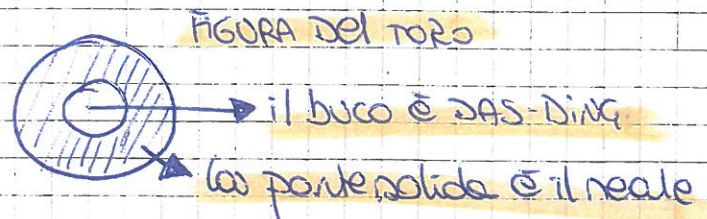 FIGURA DEl TORO
il buco è DAS-DING
la parte solida è il reale